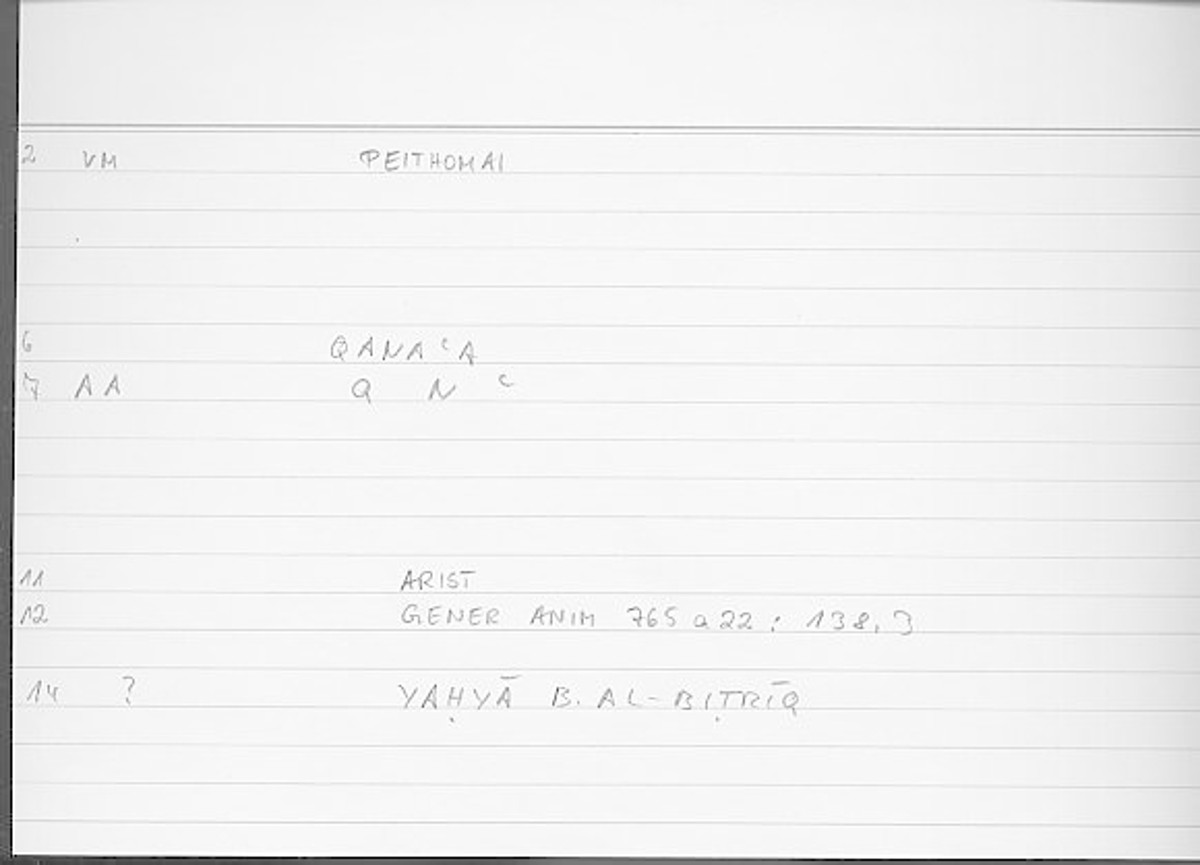 2 VM PEITHOMAI
6 QANAʿA
7 AA Q N ʿ
11 ARIST
12 GENER ANIM 765 a 22 : 138, 3
14 ? YAḤYĀ B. AL-BIṬRĪQ